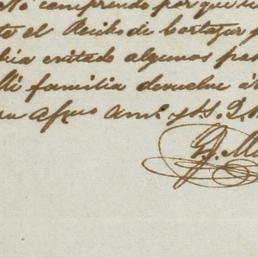 comprendo por que
te el Recibo de Cortazar
bia evitado algunos
Mi familia devuelve á
su Afmo Amº y S. S. Q.